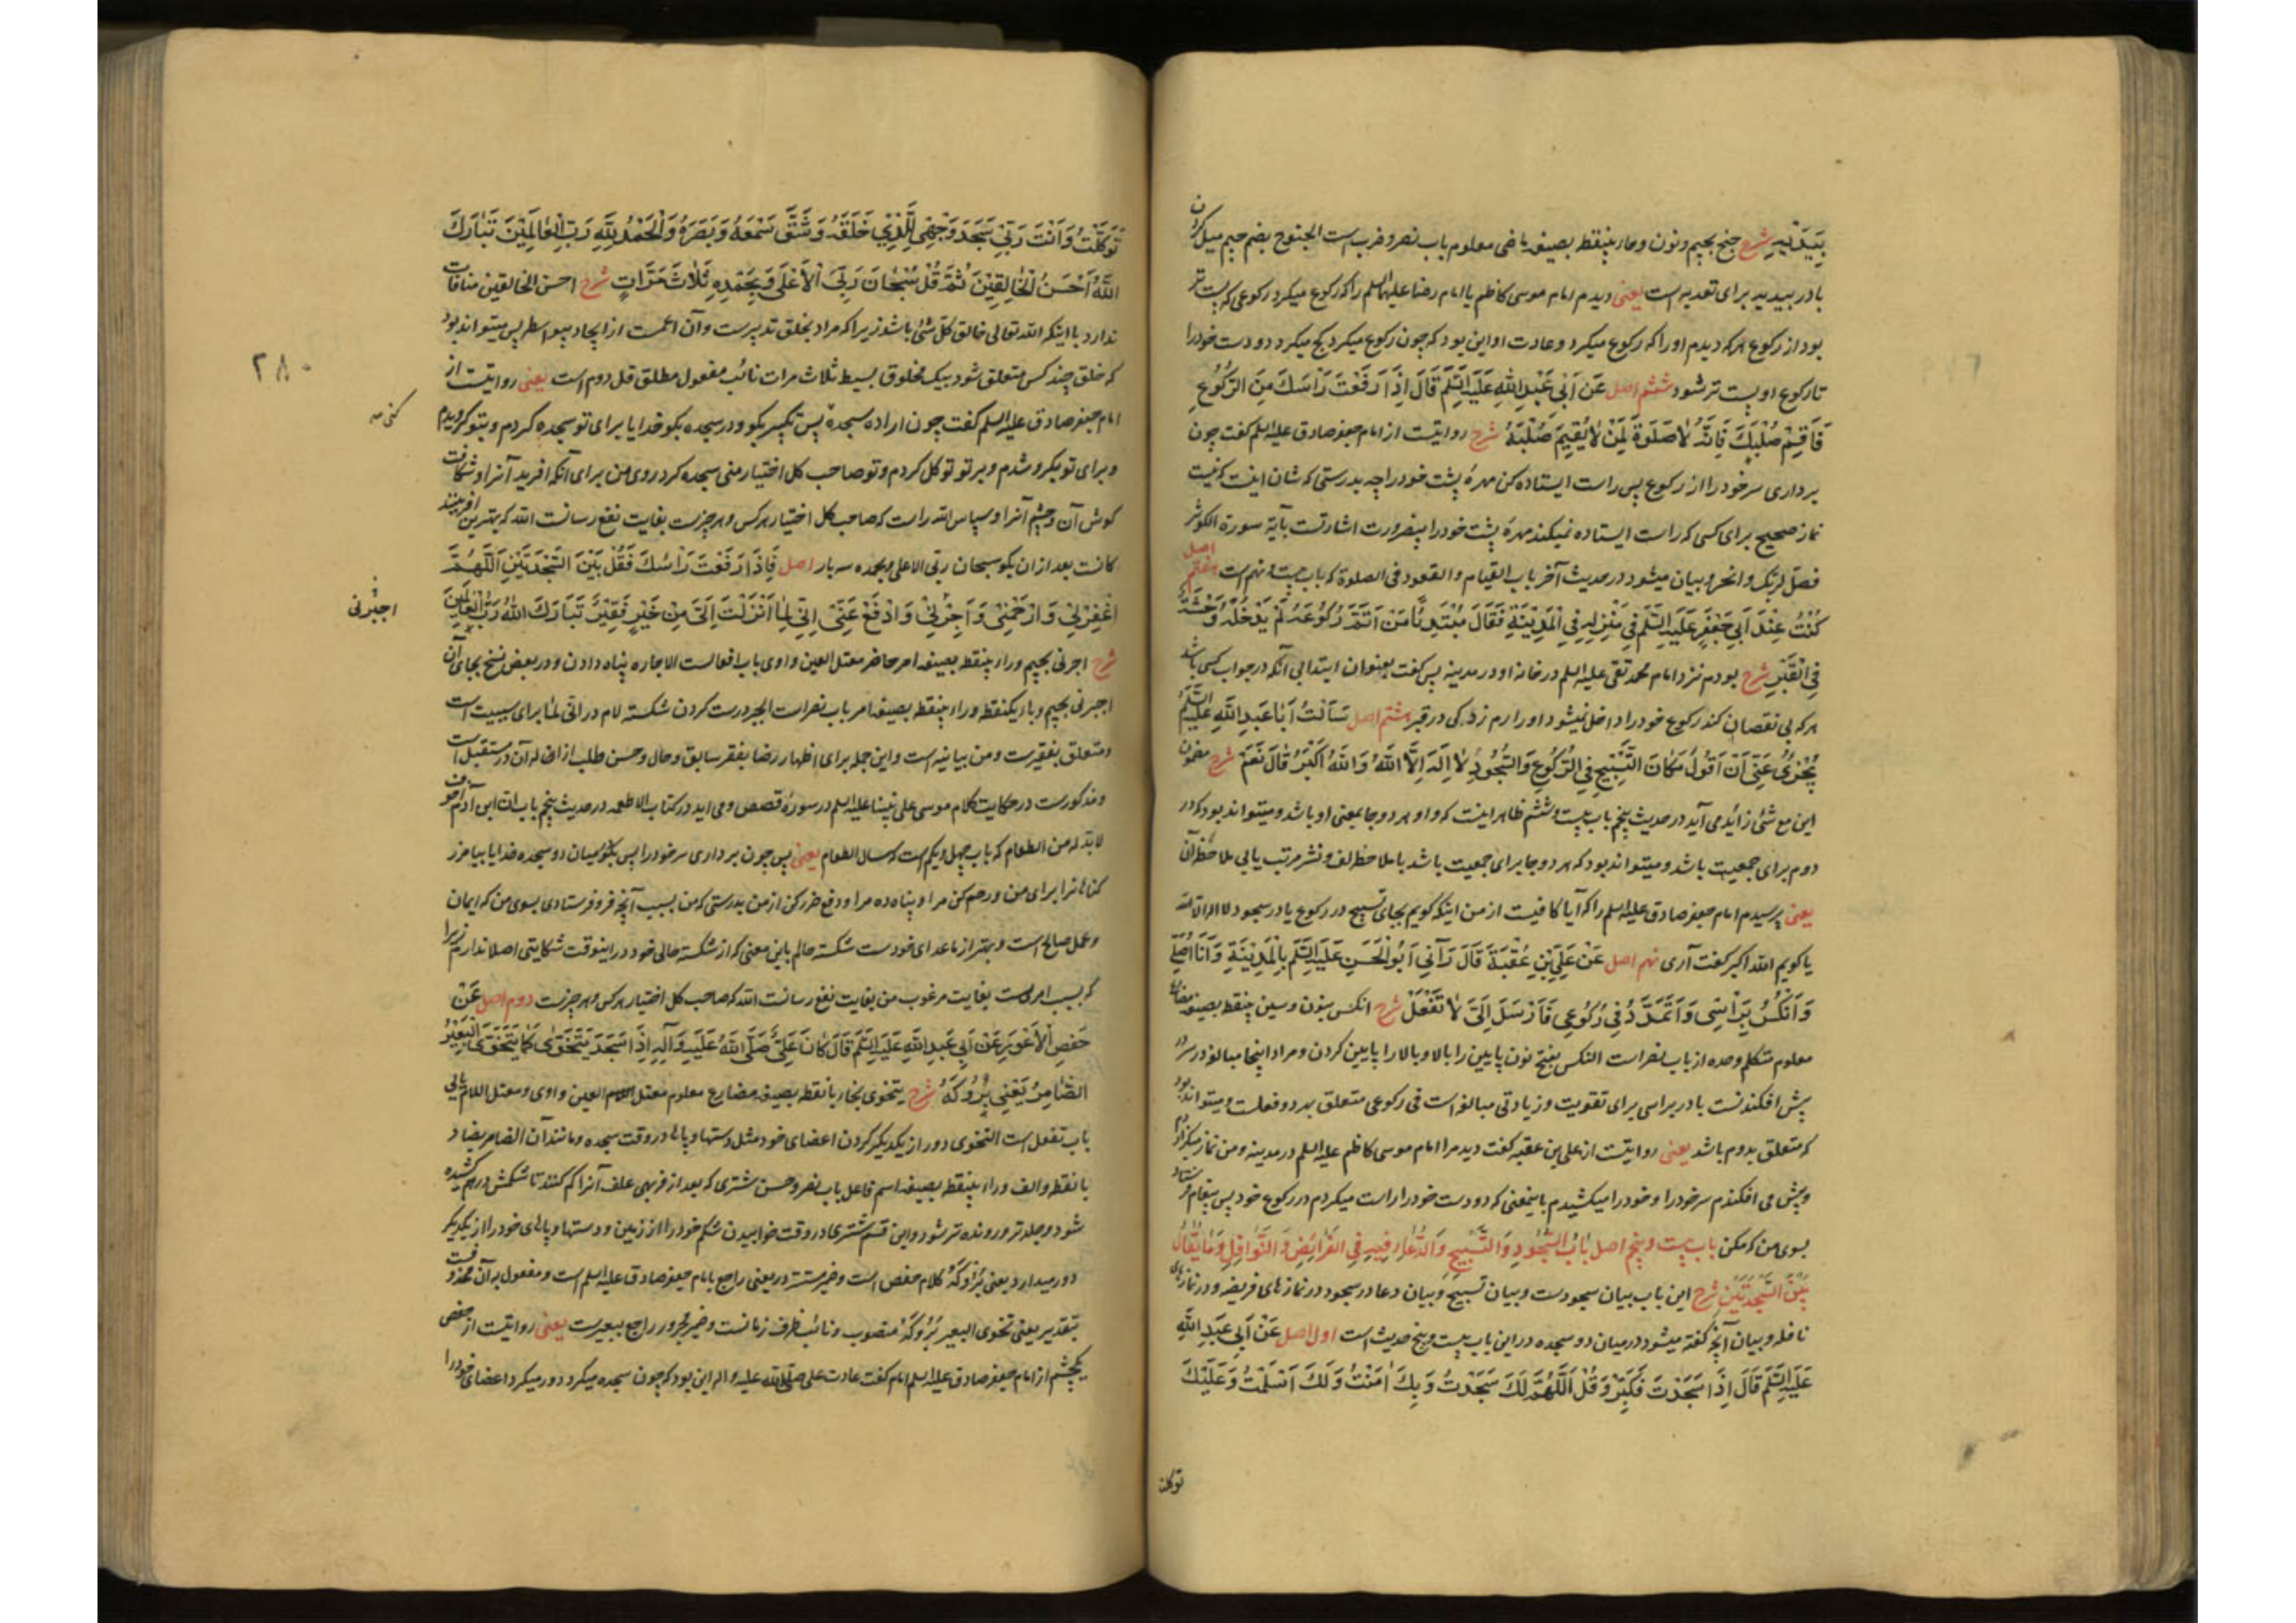 بِيَدَيْهِ شرح جنح بجیم و نون و حاء بینقطه بصیغه ماضی معلوم باب نصر و ضرب است الجنوح بضم جیم میل کردن
با در بیدیه برای تعدیه است یعنی دیدم امام موسی کاظم یا امام رضا علیهما السلم را که رکوع میکرد رکوعی که پست تر
بود از رکوع هر که دیدم او را که رکوع میکرد و عادت او این بود که چون رکوع میکرد کج میکرد دو دست خود را
تا رکوع او پست تر شود ششم اصل عَنْ اَبِي عَبْدِ اللّٰهِ عَلَيْهِ السَّلَمُ قَالَ اِذَا رَفَعْتَ رَاْسَكَ مِنَ الرُّكُوعِ
فَاَقِمْ صُلْبَكَ فَاِنَّهُ لَا صَلٰوةَ لِمَنْ لَا يُقِيمُ صُلْبَهُ شرح روایتست از امام جعفر صادق علیه السلم گفت چون
برداری سر خود را از رکوع پس راست ایستاده کن مهرهٔ پشت خود را چه بدرستی که شان اینست که نیست
نماز صحیح برای کسی که راست ایستاده نمیکند مهرهٔ پشت خود را بیضرورت اشارتست بآیهٔ سورة الکوثر
فصل لربک و انحر و بیان میشود در حدیث آخر باب القیام و القعود فی الصلوة که باب بیست و نهم است هفتم اصل
كُنْتُ عِنْدَ اَبِي جَعْفَرٍ عَلَيْهِ السَّلَمُ فِي مَنْزِلِهِ فِي الْمَدِينَةِ فَقَالَ مُبْتَدِئًا مَنْ اَتَمَّ رُكُوعَهُ لَمْ يَدْخُلْهُ وَحْشَةٌ
فِي الْقَبْرِ شرح بودم نزد امام محمد تقی علیه السلم در خانه او در مدینه پس گفت بعنوان ابتدا بی آنکه در جواب کسی باشد
هر که بی نقصان کند رکوع خود را داخل نمیشود او را رم زدگی در قبر هشتم اصل سَاَلْتُ اَبَا عَبْدِ اللّٰهِ عَلَيْهِ السَّلَمُ
يُجْزِئُ عَنِّي اَنْ اَقُولَ مَكَانَ التَّسْبِيحِ فِي الرُّكُوعِ وَالسُّجُودِ لَا اِلٰهَ اِلَّا اللّٰهُ وَاللّٰهُ اَكْبَرُ قَالَ نَعَمْ شرح مضمون
این مع شئ زائد می آید در حدیث پنجم باب بیست و ششم ظاهر اینست که واو هر دو جا بمعنی او باشد و میتواند بود که در
دوم برای جمعیت باشد و میتواند بود که هر دو جا برای جمعیت باشد با ملاحظه لف و نشر مرتب یا بی ملاحظه آن
یعنی پرسیدم امام جعفر صادق علیه السلم را که آیا کافیست از من اینکه گویم بجای تسبیح در رکوع یا در سجود لا اله الا الله
یا گویم الله اکبر گفت آری نهم اصل عَنْ عَلِيِّ بْنِ عُقْبَةَ قَالَ رَآنِي اَبُو الْحَسَنِ عَلَيْهِ السَّلَمُ بِالْمَدِينَةِ وَاَنَا اُصَلِّي
وَاَنْكُسُ بِرَاْسِي وَاَتَمَدَّدُ فِي رُكُوعِي فَاَرْسَلَ اِلَيَّ لَا تَفْعَلْ شرح انکس بنون و سین بینقطه بصیغه مضارع
معلوم متکلم وحده از باب نصر است النکس بفتح نون پایین را بالا و بالا را پایین کردن و مراد اینجا مبالغه در سر در
پیش افکندنست با در براسی برای تقویت و زیادتی مبالغه است فی رکوعی متعلق بهر دو فعلست و میتواند بود
که متعلق بدوم باشد یعنی روایتست از علی بن عقبه گفت دید مرا امام موسی کاظم علیه السلم در مدینه و من نماز میکزاردم
و پیش می افکندم سر خود را و خود را میکشیدم باینمعنی که دو دست خود را راست میکردم در رکوع خود پس پیغام فرستاد
بسوی من که مکن باب بیست و پنجم اصل بَابُ السُّجُودِ وَالتَّسْبِيحِ وَالدُّعَاءِ فِيهِ فِي الْفَرَائِضِ وَالنَّوَافِلِ وَمَا يُقَالُ
بَيْنَ السَّجْدَتَيْنِ شرح این باب بیان سجودست و بیان تسبیح و بیان دعا در سجود در نمازهای فریضه و در نمازهای
نافله و بیان آنچه گفته میشود در میان دو سجده در این باب بیست و پنج حدیث است اول اصل عَنْ اَبِي عَبْدِ اللّٰهِ
عَلَيْهِ السَّلَمُ قَالَ اِذَا سَجَدْتَ فَكَبِّرْ وَقُلْ اَللّٰهُمَّ لَكَ سَجَدْتُ وَبِكَ اٰمَنْتُ وَلَكَ اَسْلَمْتُ وَعَلَيْكَ
توکلت
تَوَكَّلْتُ وَاَنْتَ رَبِّي سَجَدَ وَجْهِي لِلَّذِي خَلَقَهُ وَشَقَّ سَمْعَهُ وَبَصَرَهُ وَالْحَمْدُ لِلّٰهِ رَبِّ الْعَالَمِينَ تَبَارَكَ
اللّٰهُ اَحْسَنُ الْخَالِقِينَ ثُمَّ قُلْ سُبْحَانَ رَبِّيَ الْاَعْلٰى وَبِحَمْدِهِ ثَلَاثَ مَرَّاتٍ شرح احسن الخالقین منافات
ندارد با اینکه الله تعالی خالق کل شئ باشد زیرا که مراد بخلق تدبیرست و آن اعمست از ایجاد بیواسطه پس میتواند بود
که خلق چند کس متعلق شود بیک مخلوق بسیط ثلاث مرات نائب مفعول مطلق قل دوم است یعنی روایتست از
۲۸۰
امام جعفر صادق علیه السلم گفت چون اراده سجده پس تکبیر بگو و در سجده بگو خدایا برای تو سجده کردم و بتو گرویدم
کنی صه
و برای تو یکرو شدم و بر تو توکل کردم و تو صاحب کل اختیار منی سجده کرد روی من برای آنکه آفرید آنرا و شکافت
گوش آن و چشم آنرا و سپاس الله راست که صاحب کل اختیار هر کس و هر چیزست بغایت نفع رسانست الله که بهترین آفرینند
کانست بعد از ان بگو سبحان ربی الاعلی و بحمده سه بار اصل فَاِذَا رَفَعْتَ رَاْسَكَ فَقُلْ بَيْنَ السَّجْدَتَيْنِ اَللّٰهُمَّ
اغْفِرْ لِي وَارْحَمْنِي وَاَجِرْنِي وَادْفَعْ عَنِّي اِنِّي لِمَا اَنْزَلْتَ اِلَيَّ مِنْ خَيْرٍ فَقِيرٌ تَبَارَكَ اللّٰهُ رَبُّ الْعَالَمِينَ
اجبرنی
شرح اجرنی بجیم و راء بینقطه بصیغه امر حاضر معتل العین واوی باب افعالست الاجاره پناه دادن و در بعض نسخ بجای آن
اجبرنی بجیم و باء یکنقطه و راء بینقطه بصیغه امر باب نصر است الجبر درست کردن شکسته لام در انی لما برای سببیت است
و متعلق بفقیرست و من بیانیه است و این جمله برای اظهار رضا بفقر سابق و حال و حسن طلب از اله آن در مستقبل است
و مذکورست در حکایت کلام موسی علی نبینا علیه السلم در سوره قصص و می اید در کتاب الاطعمه در حدیث پنجم باب ان ابن آدم اجوف
لابد له من الطعام که باب چهل و یکم است که سال الطعام یعنی پس چون برداری سر خود را پس بگو میان دو سجده خدایا بیامرز
گناهانرا برای من و رحم کن مرا و پناه ده مرا و دفع ضرر کن از من بدرستی که من بسبب آنچه فرو فرستادی بسوی من که ایمان
و عمل صالح است و بهتر از ماعدای خودست شکسته حالم باین معنی که از شکسته حالی خود در اینوقت شکایتی اصلا ندارم زیرا
که بسبب امریست بغایت مرغوب من بغایت نفع رسانست الله که صاحب کل اختیار هر کس و هر چیزست دوم اصل عَنْ
حَفْصٍ الْاَعْوَرِ عَنْ اَبِي عَبْدِ اللّٰهِ عَلَيْهِ السَّلَمُ قَالَ كَانَ عَلِيٌّ صَلَّى اللّٰهُ عَلَيْهِ وَآلِهِ اِذَا سَجَدَ يَتَخَوّٰى كَمَا يَتَخَوَّى الْبَعِيرُ
الضَّامِرُ يَعْنِي بُرُوكَهُ شرح یتخوی بخاء با نقطه بصیغه مضارع معلوم معتل العین واوی و معتل اللام یائی
باب تفعل است التخوی دور از یکدیگر کردن اعضای خود مثل دستها و پاها در وقت سجده و مانند آن الضامر بضاد
با نقطه و الف و راء بینقطه بصیغه اسم فاعل باب نصر و حسن شتری که بعد از فربهی علف آنرا کم کنند تا شکمش در هم کشیده
شود و جلدتر و رونده تر شود و این قسم شتری در وقت خوابیدن شکم خود را از زمین و دستها و پاهای خود را از یکدیگر
دور میدارد یعنی بُرُوكَهُ کلام حفص است و ضمیر مستتر در یعنی راجع بامام جعفر صادق علیه السلم است و مفعول به آن محذوفست
بتقدیر یعنی تخوی البعیر بروکه منصوب و نائب ظرف زمانست و ضمیر مجرور راجع ببعیرست یعنی روایتست از حفص
یکچشم از امام جعفر صادق علیه السلم امام گفت عادت علی صلی الله علیه و آله این بود که چون سجده میکرد دور میکرد اعضای خود را